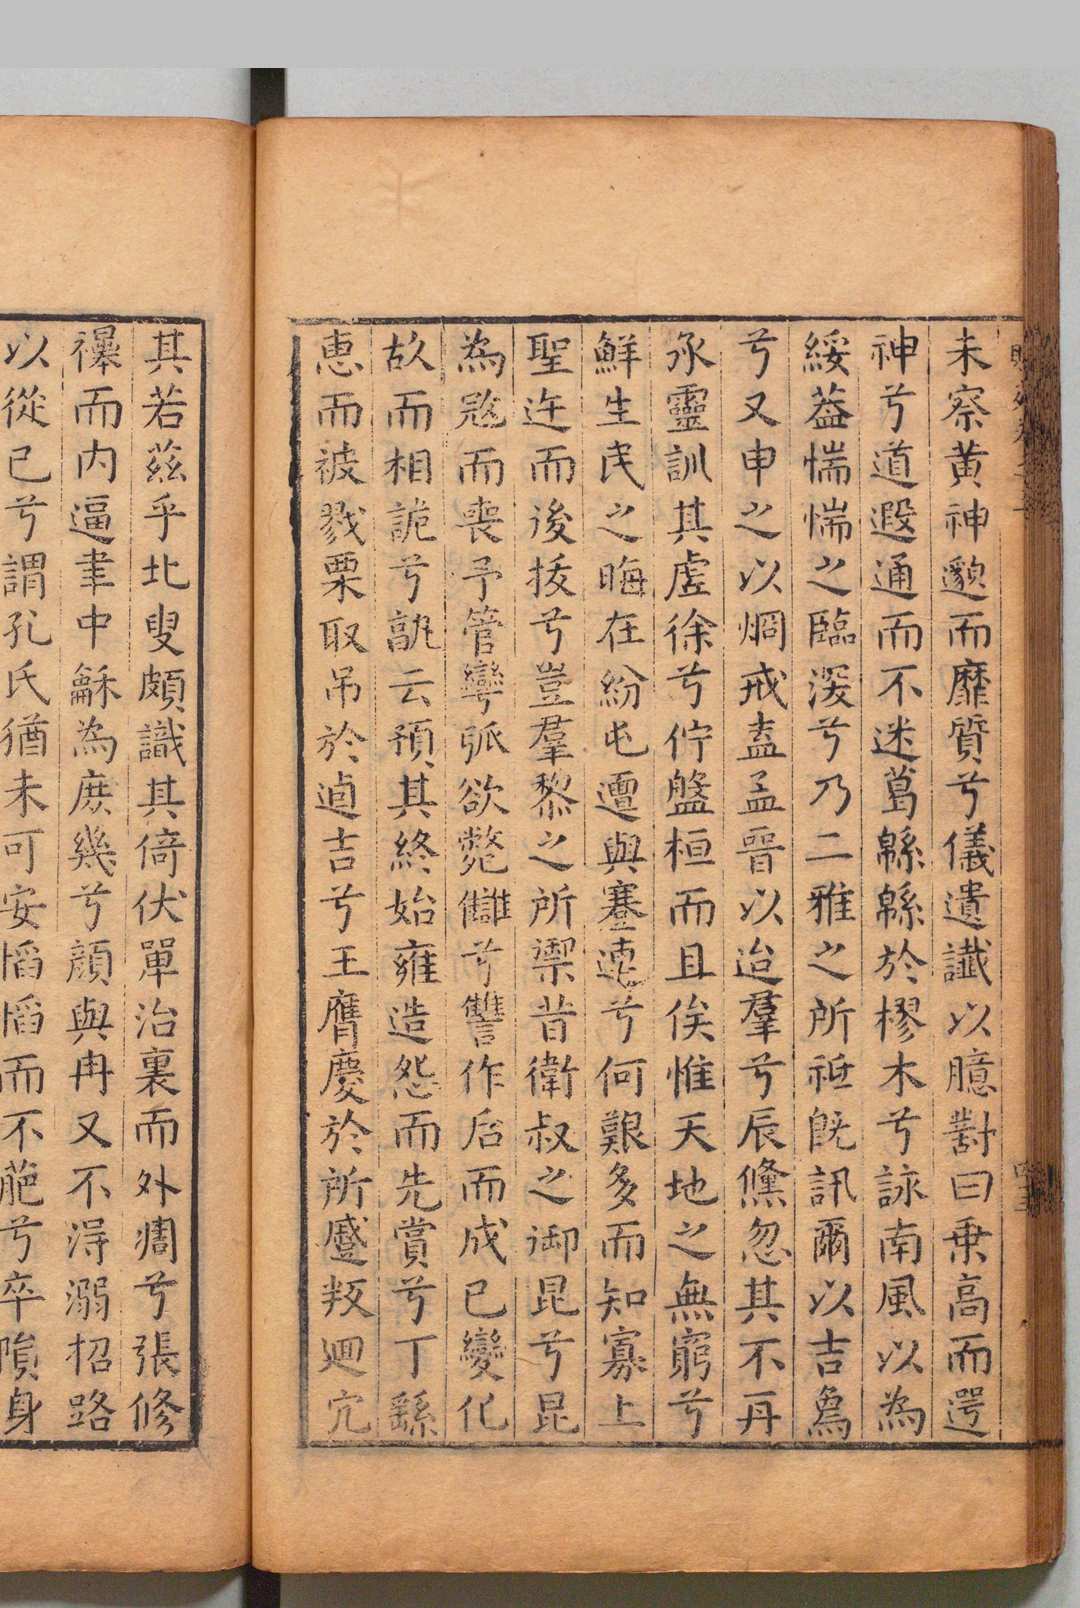 未察黄神邈而靡質兮儀遺讖以臆對曰乗高而遌
神兮道遐通而不迷葛緜緜於樛木兮詠南風以為
綏葢惴惴之臨深兮乃二雅之所祗旣訊爾以吉𧰼
兮又申之以烱戒盍孟晉以迨羣兮辰儵忽其不再
承靈訓其虛徐兮佇盤桓而且俟惟天地之無窮兮
鮮生民之晦在紛屯邅與蹇連兮何艱多而知寡上
聖迕而後拔兮豈羣黎之所禦昔衛叔之御昆兮昆
為寇而喪予管彎弧欲斃讎兮讐作后而成已變化
故而相詭兮孰云預其終始雍造怨而先賞兮丁繇
惠而被戮栗取吊於逌吉兮王膺慶於所蹙叛迴宂
其若茲乎北叟頗識其倚伏單治裏而外凋兮張修
襮而内逼聿中龢為庶幾兮顔與冉又不淂溺招路
以從已兮謂孔氏猶未可安慆慆而不萉兮卒隕身